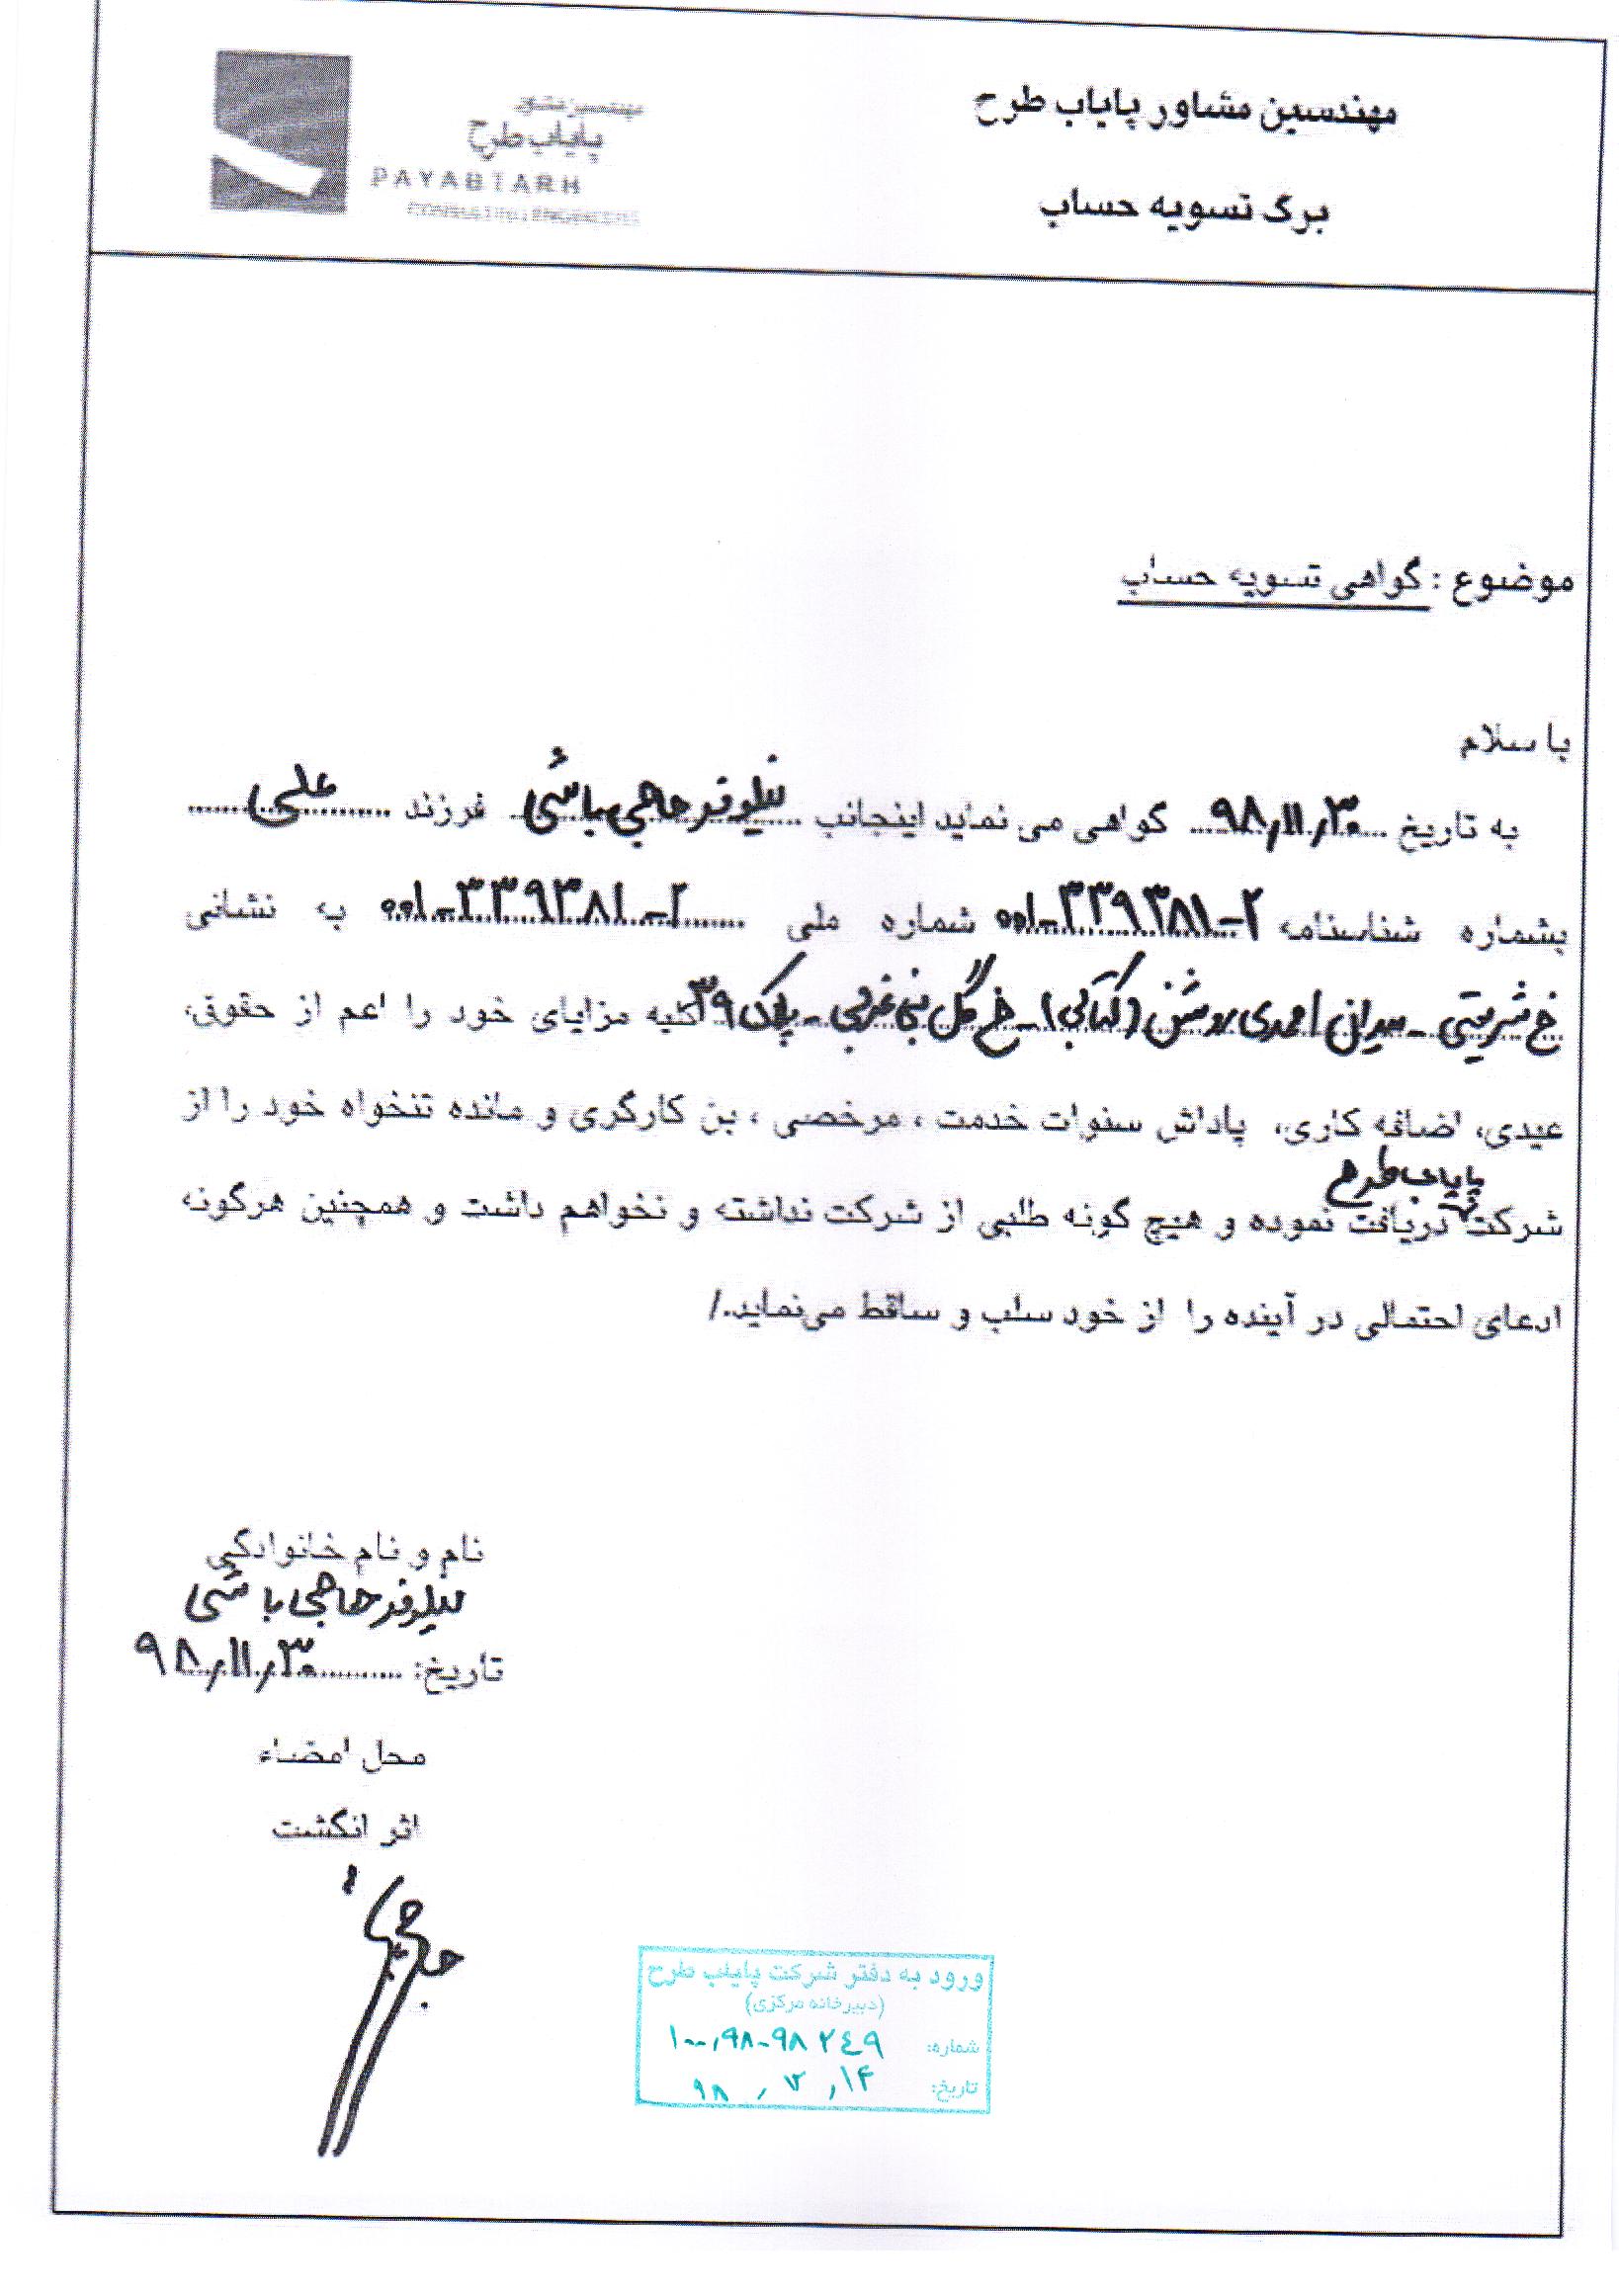 مهندسین مشاور پایاب طرح
برگ تسویه حساب
مهندسین مشاور
پایاب طرح
PAYABTARH
موضوع : گواهی تسویه حساب
با سلام
به تاریخ ۹۸/۱۱/۳۰ گواهی می نماید اینجانب نیلوفر حاجی باشی فرزند علی
بشماره شناسنامه ۰۰۱-۳۳۹۳۸۱-۲ شماره ملی ۰۰۱-۳۳۹۳۸۱-۲ به نشانی
خ شریعتی - میدان احمدی روشن (کتابی) - خ گل نبی غربی - پلاک ۳۹ کلیه مزایای خود را اعم از حقوق،
عیدی، اضافه کاری، پاداش سنوات خدمت ، مرخصی ، بن کارگری و مانده تنخواه خود را از
شرکت پایاب طرح دریافت نموده و هیچ گونه طلبی از شرکت نداشته و نخواهم داشت و همچنین هرگونه
ادعای احتمالی در آینده را از خود سلب و ساقط می‌نماید./
نام و نام خانوادگی
نیلوفر حاجی باشی
تاریخ: ۹۸/۱۱/۳۰
محل امضاء
اثر انگشت
ورود به دفتر شرکت پایاب طرح
(دبیرخانه مرکزی)
شماره: ۱۰۰/۹۸-۹۸۲۴۹
تاریخ: ۹۸/۱۲/۱۴